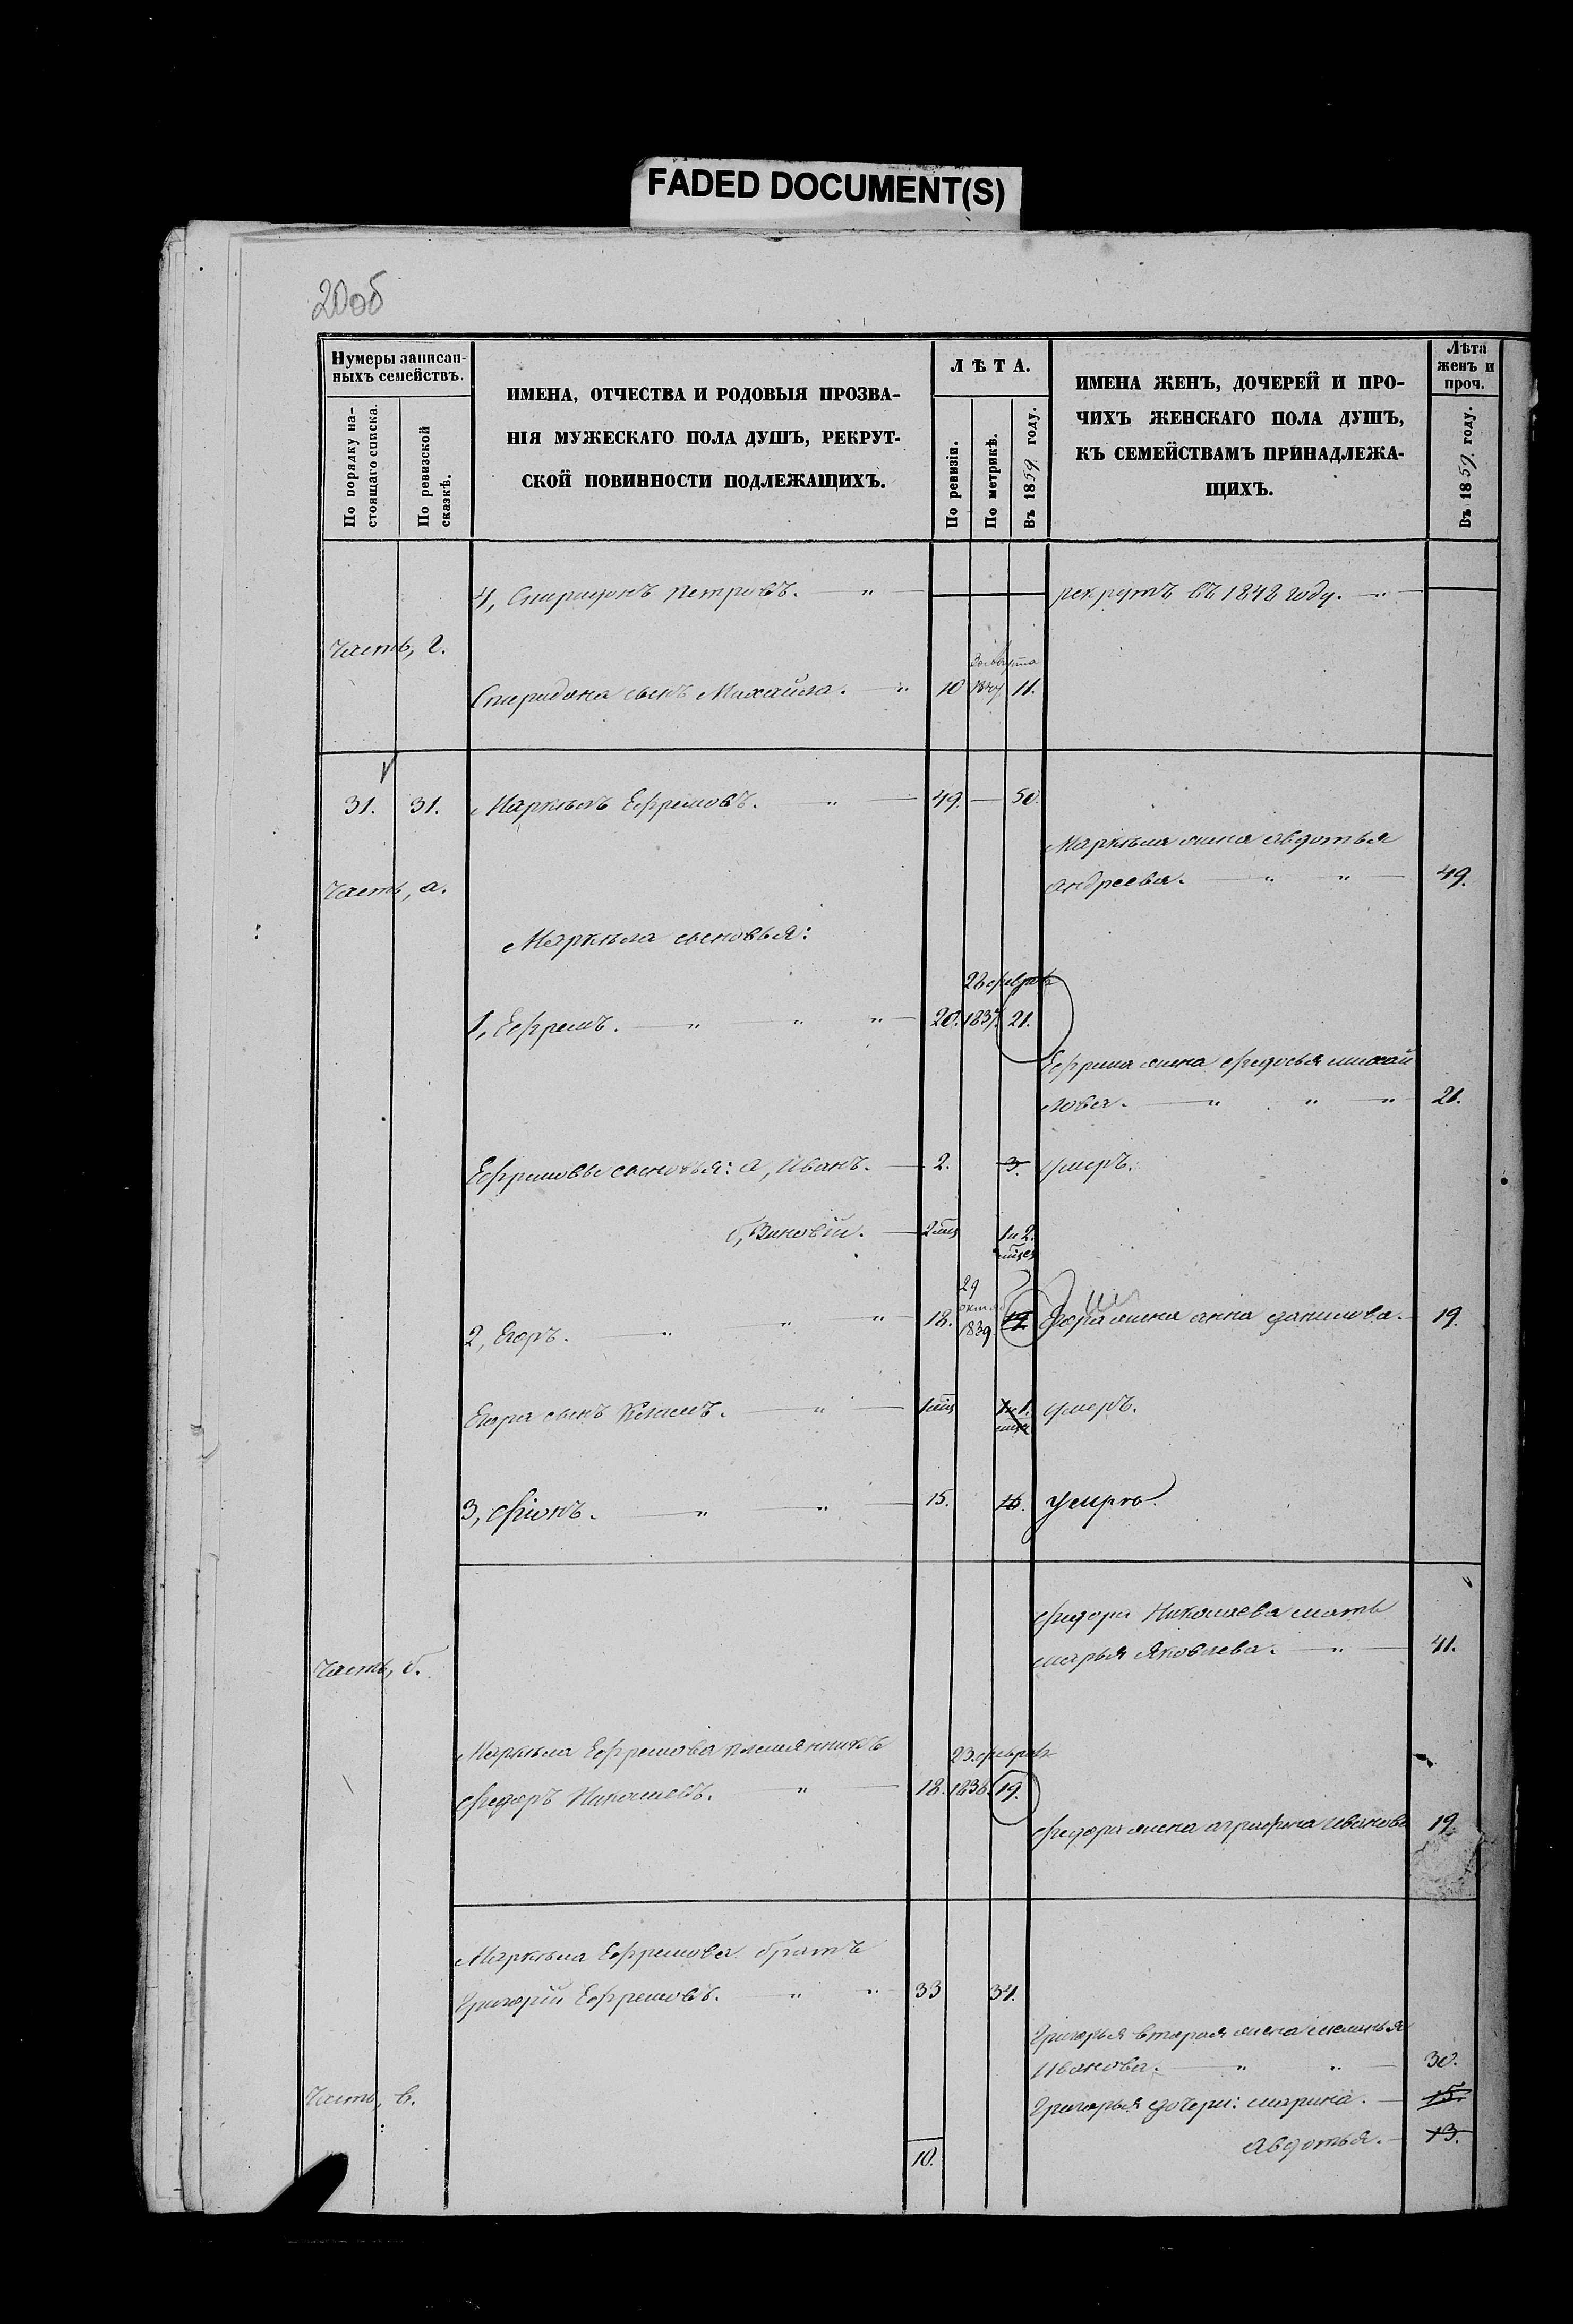 FADED DOCUMENT(S)
20об
Нумеры записан-
ныхъ семействъ.
По порядку на-
стоящаго списка.
По ревизской
сказкѣ.
ИМЕНА, ОТЧЕСТВА И РОДОВЫЯ ПРОЗВА-
НІЯ МУЖЕСКАГО ПОЛА ДУШЪ, РЕКРУТ-
СКОЙ ПОВИННОСТИ ПОДЛЕЖАЩИХЪ.
ЛѢТА.
По ревизіи.
По метрикѣ.
Въ 1859 году.
ИМЕНА ЖЕНЪ, ДОЧЕРЕЙ И ПРО-
ЧИХЪ ЖЕНСКАГО ПОЛА ДУШЪ,
КЪ СЕМЕЙСТВАМЪ ПРИНАДЛЕЖА-
ЩИХЪ.
Лѣта
женъ и
проч.
Въ 1859 году.
4, Спиридонъ Петровъ. — " —
рекрутъ въ 1848 году. — " —
Часть, г.
Спиридона сынъ Михайла. — " 10 11.
31. 31. Маркелъ Ефремовъ. " — 49. — 50.
Маркела жена Авдотья
Андреева. — " " — 49.
Часть, а.
Маркела сыновья:
28 февраля
1, Ефремъ. — " " " — 20. 1837. 21.
Ефрема жена Федосья Михай
лова. — " " — " 21.
Ефремовы сыновья: а, Иванъ. — 2. 3. умеръ.
б, Зиновій. — 2 мѣс 1 и 2.
мѣся
29
октяб
2, Егоръ. — " " " 18. 1839 19. Егора жена Анна Данилова. — 19.
Егора сынъ — " — 1 мѣс 1 и 1. умеръ.
мѣся
3, Фіонъ. — " " — 15. 16. умеръ.
Федора Николаева мать
Марья Яковлева. — " — 41.
Часть, б.
Маркела Ефремова племянникъ
23 февраля
Федоръ Николаевъ. " — 18. 1838. 19.
Федора жена Аграфена Иванова 19.
Маркела Ефремова братъ
Григорій Ефремовъ. — " " 33 34.
Григорья вторая жена Меланья
Иванова. — " " — 30.
Часть, в.
Григорья дочери: Марина. — 15.
Авдотья. — 13.
10.